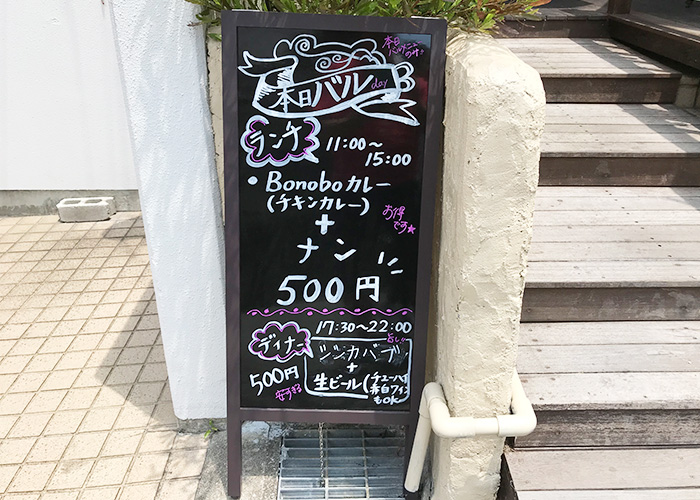 本日バル day
ランチ 11:00〜
15:00
• Bonoboカレー
(チキンカレー)
+
ナン
お得
です★
500円
17:30〜22:00
ディナー
シシカバブ
+
生ビール(チューハイ
赤白ワイン
もOK
500円
安すぎる